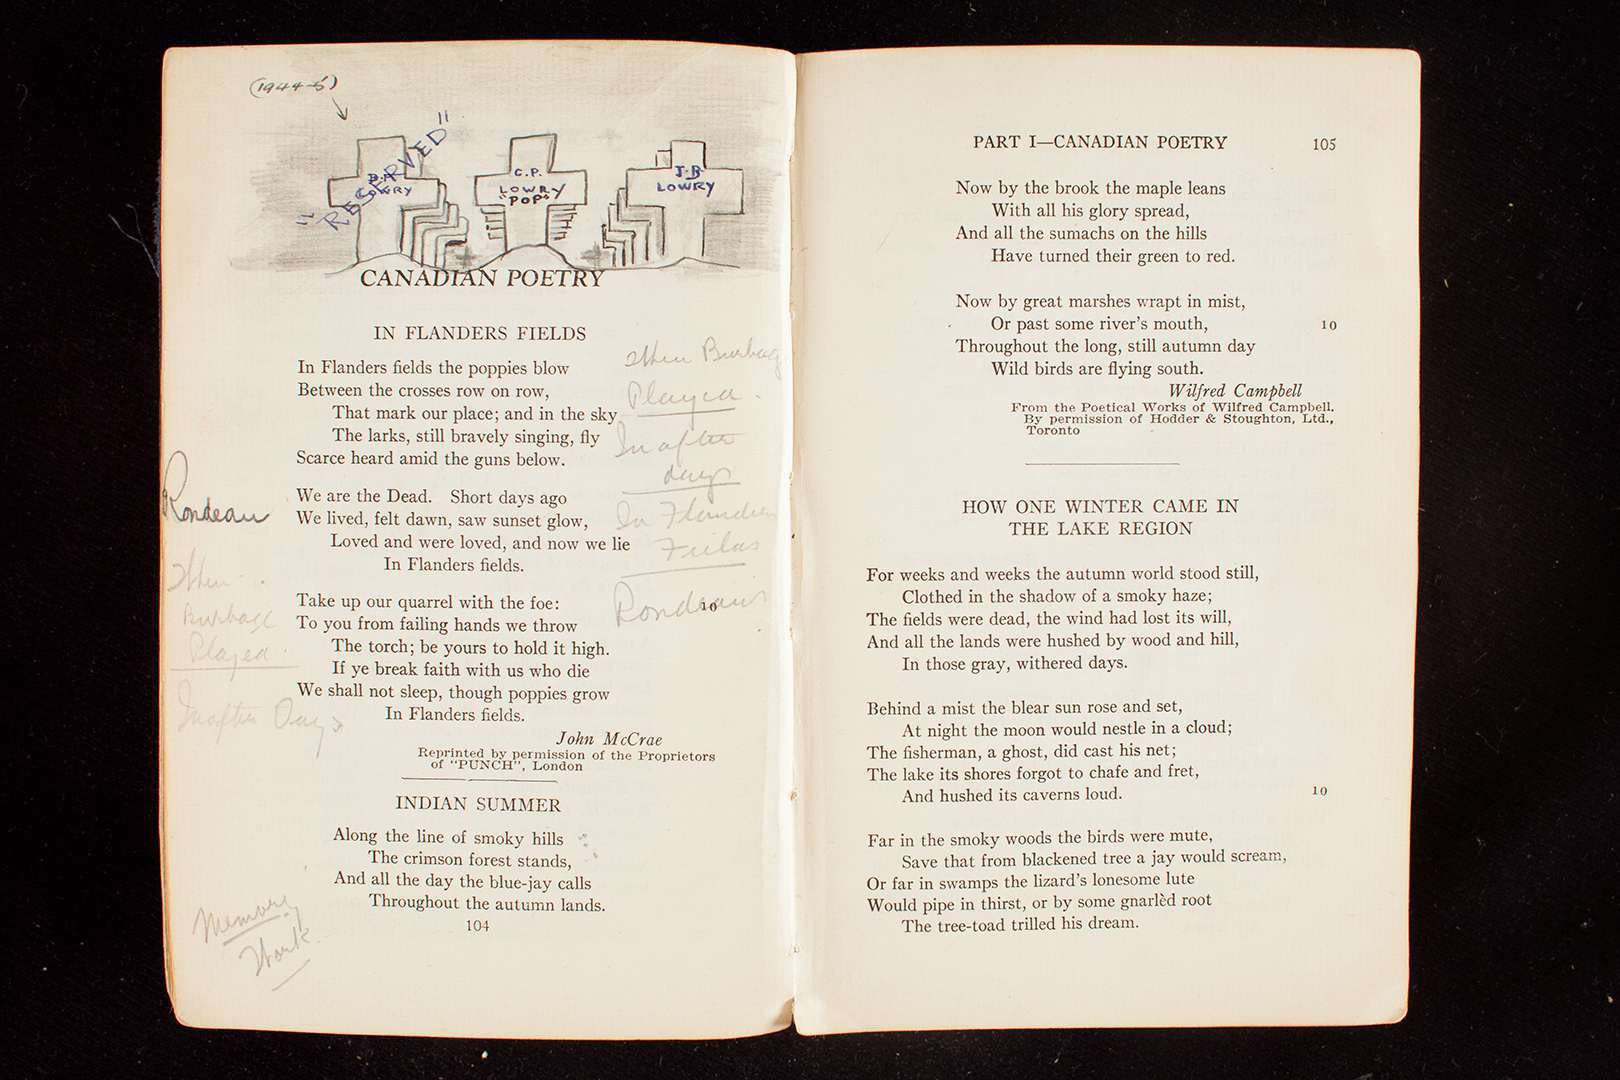 (1944-5)
"RESERVED"
LOWRY
C.P.
LOWRY
"POP"
J.B.
LOWRY
CANADIAN POETRY
IN FLANDERS FIELDS
In Flanders fields the poppies blow
Between the crosses row on row,
That mark our place; and in the sky
The larks, still bravely singing, fly
Scarce heard amid the guns below.
We are the Dead. Short days ago
We lived, felt dawn, saw sunset glow,
Loved and were loved, and now we lie
In Flanders fields.
Take up our quarrel with the foe: 10
To you from failing hands we throw
The torch; be yours to hold it high.
If ye break faith with us who die
We shall not sleep, though poppies grow
In Flanders fields.
John McCrae
Reprinted by permission of the Proprietors
of "PUNCH", London
INDIAN SUMMER
Along the line of smoky hills
The crimson forest stands,
And all the day the blue-jay calls
Throughout the autumn lands.
104
Rondeau
When
Burbage
Played
In after Days
Memory
Work
When Burbage
Played
In after
days
In Flanders
Fields
Rondeau's
PART I—CANADIAN POETRY 105
Now by the brook the maple leans
With all his glory spread,
And all the sumachs on the hills
Have turned their green to red.
Now by great marshes wrapt in mist,
Or past some river's mouth, 10
Throughout the long, still autumn day
Wild birds are flying south.
Wilfred Campbell
From the Poetical Works of Wilfred Campbell.
By permission of Hodder & Stoughton, Ltd.,
Toronto
HOW ONE WINTER CAME IN
THE LAKE REGION
For weeks and weeks the autumn world stood still,
Clothed in the shadow of a smoky haze;
The fields were dead, the wind had lost its will,
And all the lands were hushed by wood and hill,
In those gray, withered days.
Behind a mist the blear sun rose and set,
At night the moon would nestle in a cloud;
The fisherman, a ghost, did cast his net;
The lake its shores forgot to chafe and fret,
And hushed its caverns loud. 10
Far in the smoky woods the birds were mute,
Save that from blackened tree a jay would scream,
Or far in swamps the lizard's lonesome lute
Would pipe in thirst, or by some gnarlèd root
The tree-toad trilled his dream.